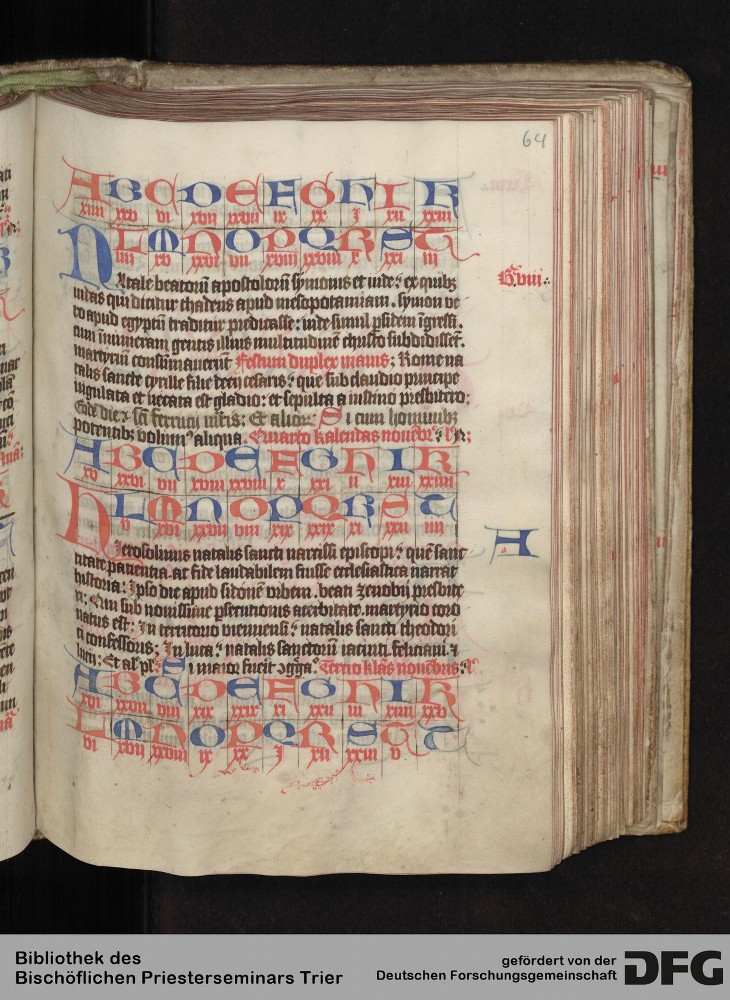 64
A B C D E F G H I K
xiiii xxv vi xvii xxviii ix xx i xii xxiii
L M N O P Q R S T
iiii xv xxvi vii xviii xxviiii x xxi iii
Natale beatorū apostolorū symonis et iude: ex quibꝫ
iudas qui dicitur thadeus apud mesopotamiam. symon ve
ro apud egyptū traditur predicasse: inde simul psidem īgressi.
cum inumeram gentis illius multitudinē christo subdidissēt.
martyriū consūmauerūt Festum duplex maius: Rome na
talis sancte cyrille filie decij cesaris: que sub claudio principe
iugulata et necata est gladio: et sepulta a iustino presbitero:
Eodē die sc̄i ferrucij mr̄is: Et alior: Si cum hominibꝫ
potentibꝫ volumꝰ aliqua. Quarto kalendas nouēbr
G. viii.
A B C D E F G H I K
xv xxvi vii xviii xxviiii x xxi ii xiii xxiiii
L M N O P Q R S T
v xvi xxvii viii xix xxix xi xxii iiii
A
Hierosolimis natalis sancti narcissi episcopi: quē sanc
titate patientia. at fide laudabilem fuisse ecclesiastica narrat
historia: Ipso die apud sidonē vrbem. beati zenobij presbite
ri: Qui sub nouissime psecutionis acerbitate. martyrio coro
natus est: In territorio viennensi: natalis sancti theodori
ti confessoris: In luca: natalis sanctorū iacinti. feliciani. ⁊
lucij: Et al pl: Si maior fuerit ꝯgꝛa. Tercio klās nouēbris:
A B C D E F G H I K
xvi xxvii viii xix xxix xi xxii iii xiiii xxv
L M N O P Q R S T
vi xvii xxviii ix xx i xii xxiii v
Bibliothek des
Bischöflichen Priesterseminars Trier
gefördert von der
Deutschen Forschungsgemeinschaft
DFG